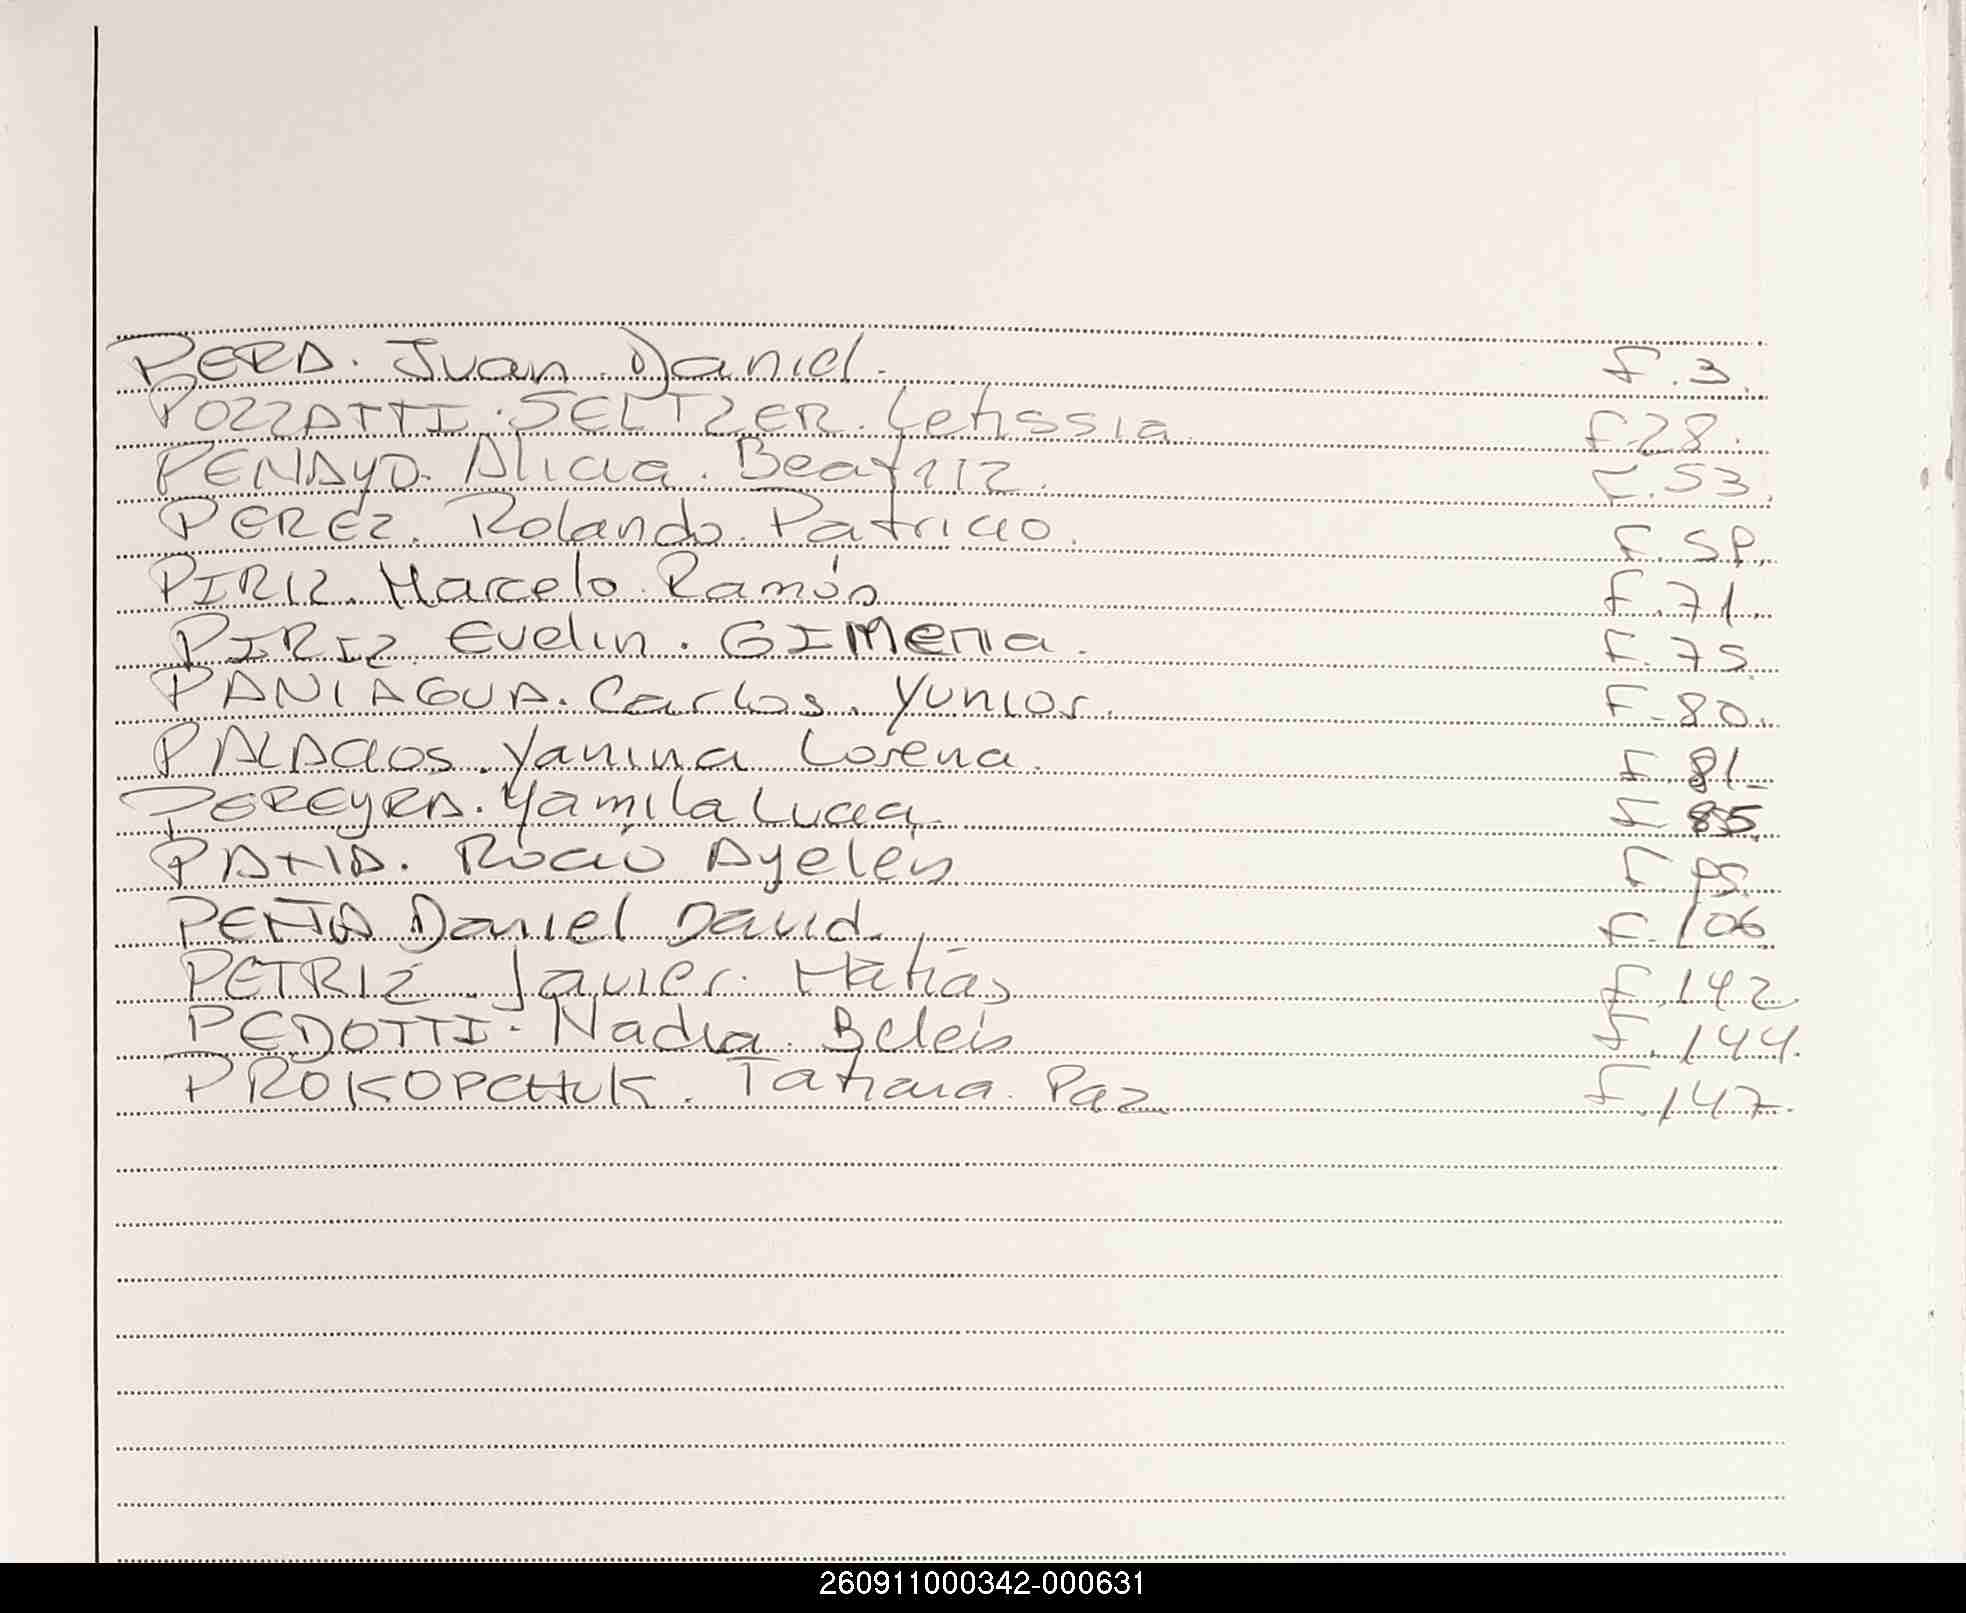 PERA. Juan Daniel. F.3.
POZZATTI. SELTZER. Letissia F.28.
PENAYO. Alicia. Beatriz. F.53.
PEREZ. Rolando. Patricio. F.59.
PIRIZ. Marcelo. Ramón F.71.
PIRIZ. Evelin. GIMena. F.75
PANIAGUA. Carlos. Yunior. F.80.
PALACIOS. Yanina Lorena. F.81.
PEREYRA. Yamila Lucia F 85.
Rocio Ayelén F.95.
PEÑA Daniel David. F.106
PETRIZ. Javier. Matías F.142
PEDOTTI. Nadia. Belén F.144.
PROKOPCHUK. Tatiana. Paz F.147.
260911000342-000631